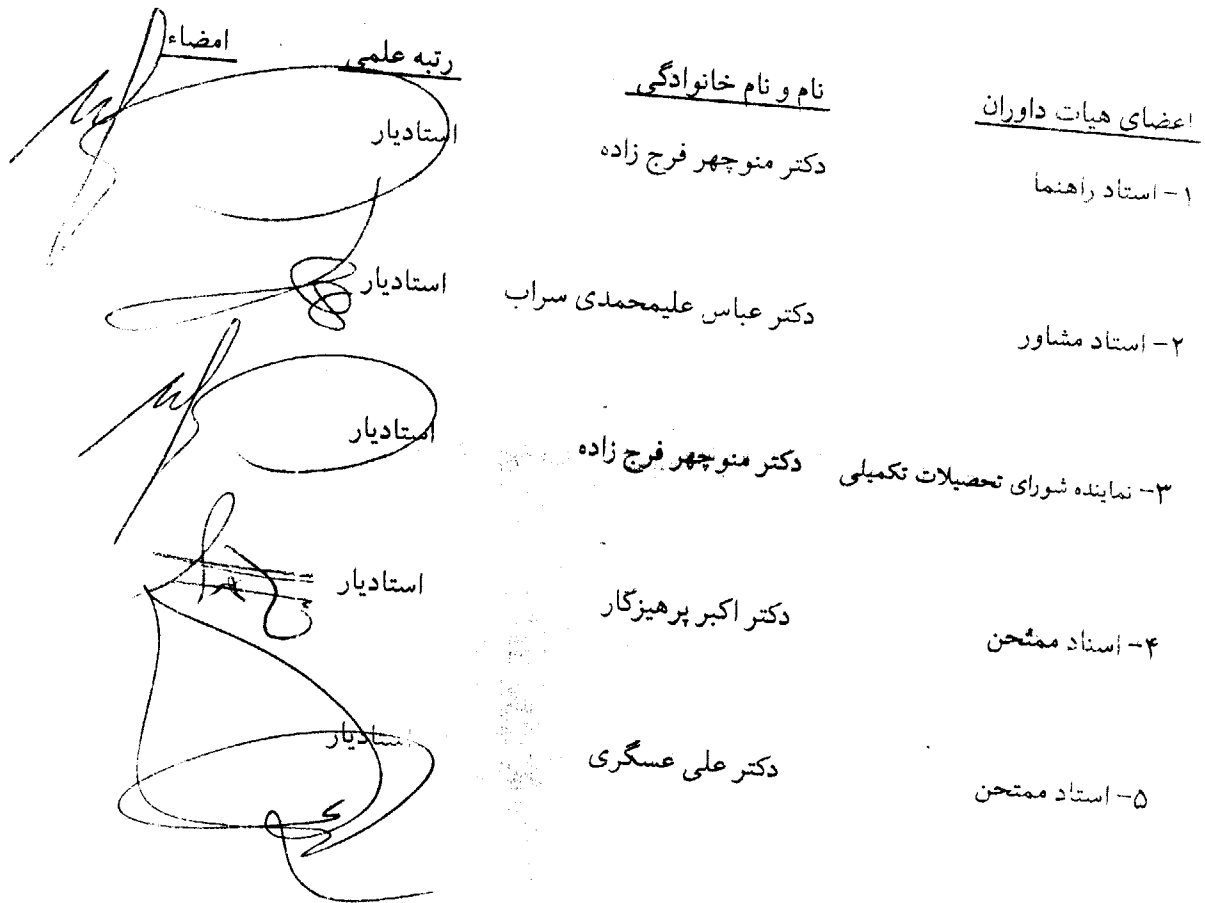 اعضای هیات داوران نام و نام خانوادگی رتبه علمی امضاء
۱- استاد راهنما دکتر منوچهر فرج زاده استادیار
۲- استاد مشاور دکتر عباس علیمحمدی سراب استادیار
۳- نماینده شورای تحصیلات تکمیلی دکتر منوچهر فرج زاده استادیار
۴- استاد ممتحن دکتر اکبر پرهیزگار استادیار
۵- استاد ممتحن دکتر علی عسگری استادیار